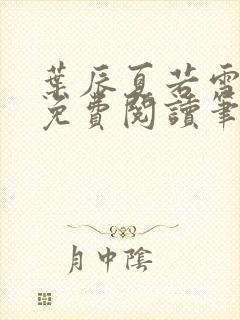 葉辰夏若雪
免費閱讀筆
月中陰